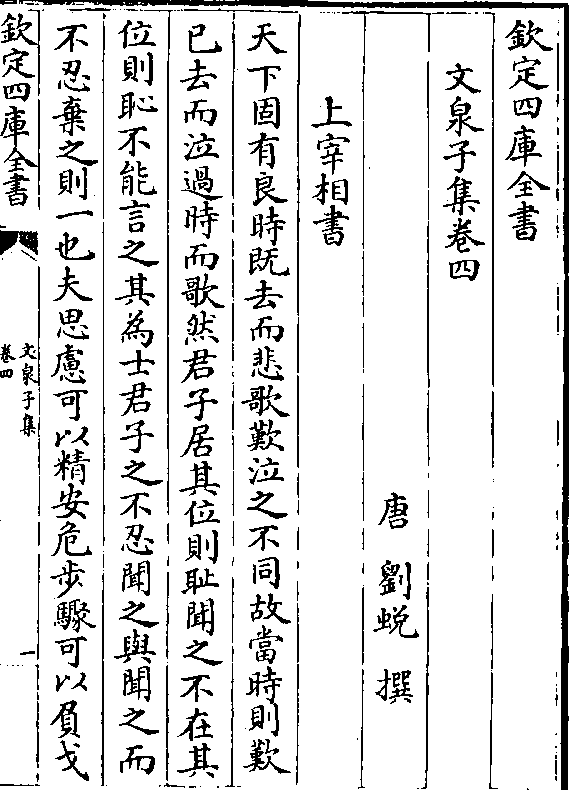 欽定四庫全書
文泉子集卷四
唐 劉蛻 撰
上宰相書
天下固有良時既去而悲歌歎泣之不同故當時則歎
已去而泣過時而歌然君子居其位則耻聞之不在其
位則恥不能言之其為士君子之不忍聞之與聞之而
不忍棄之則一也夫思慮可以精安危步驟可以負戈
欽定四庫全書
文泉子集
卷四
一